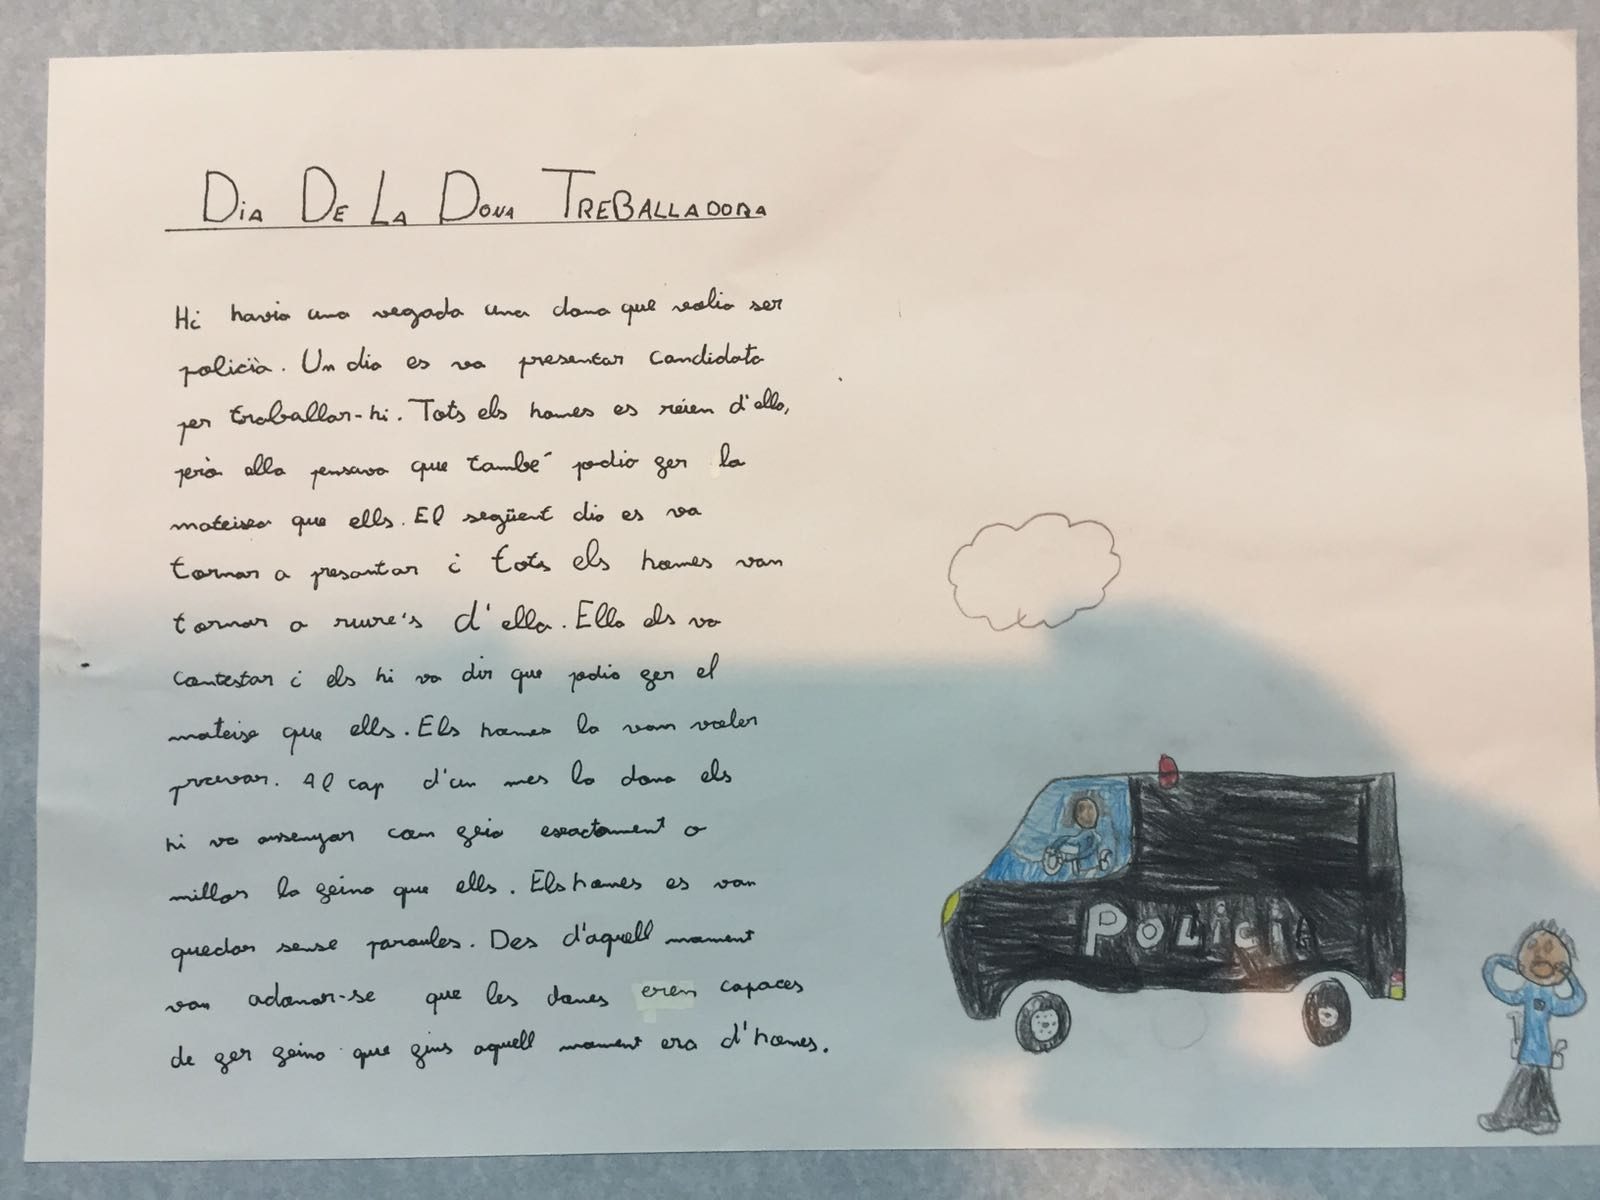 Dia De La Dona Treballadora
Hi havia una vegada una dona que volia ser
policia. Un dia es va presentar candidata
per treballar-hi. Tots els homes es reien d'ella,
però ella pensava que també podia fer la
mateixa que ells. El següent dia es va
tornar a presantar i tots els homes van
tornar a riure's d'ella. Ella els va
contestar i els hi va dir que podia fer el
mateix que ells. Els homes la van voler
provar. Al cap d'un mes la dona els
hi va ensenyar com feia exactament o
millor la feina que ells. Els homes es van
quedar sense paraules. Des d'aquell moment
van adonar-se que les dones eren capaces
de fer feina que fins aquell moment era d'homes.
POLICIA